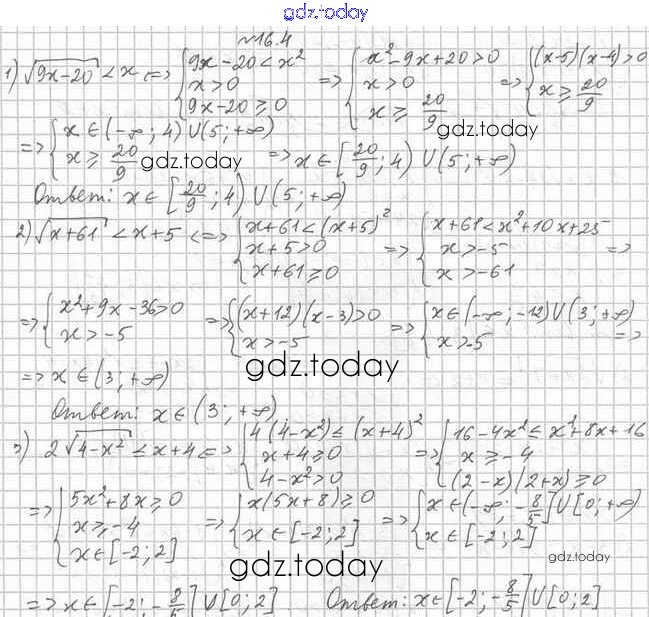 gdz.today
№16.4
1) √(9x-20) < x <=> { 9x-20 < x² ; x > 0 ; 9x-20 ≥ 0 => { x²-9x+20 > 0 ; x > 0 ; x ≥ 20/9 => { (x-5)(x-4) > 0 ; x ≥ 20/9
gdz.today
=> { x ∈ (-∞; 4) ∪ (5; +∞) ; x ≥ 20/9 => x ∈ [20/9; 4) ∪ (5; +∞)
gdz.today
Ответ: x ∈ [20/9; 4) ∪ (5; +∞)
2) √(x+61) < x+5 <=> { x+61 < (x+5)² ; x+5 > 0 ; x+61 ≥ 0 => { x+61 < x²+10x+25 ; x > -5 ; x > -61 =>
=> { x²+9x-36 > 0 ; x > -5 => { (x+12)(x-3) > 0 ; x > -5 => { x ∈ (-∞; -12) ∪ (3; +∞) ; x > -5 =>
gdz.today
=> x ∈ (3; +∞)
Ответ: x ∈ (3; +∞)
3) 2√(4-x²) ≤ x+4 <=> { 4(4-x²) ≤ (x+4)² ; x+4 ≥ 0 ; 4-x² > 0 => { 16-4x² ≤ x²+8x+16 ; x ≥ -4 ; (2-x)(2+x) ≥ 0
=> { 5x²+8x ≥ 0 ; x ≥ -4 ; x ∈ [-2; 2] => { x(5x+8) ≥ 0 ; x ∈ [-2; 2] => { x ∈ (-∞; -8/5] ∪ [0; +∞) ; x ∈ [-2; 2]
gdz.today
gdz.today
=> x ∈ [-2; -8/5] ∪ [0; 2] Ответ: x ∈ [-2; -8/5] ∪ [0; 2]